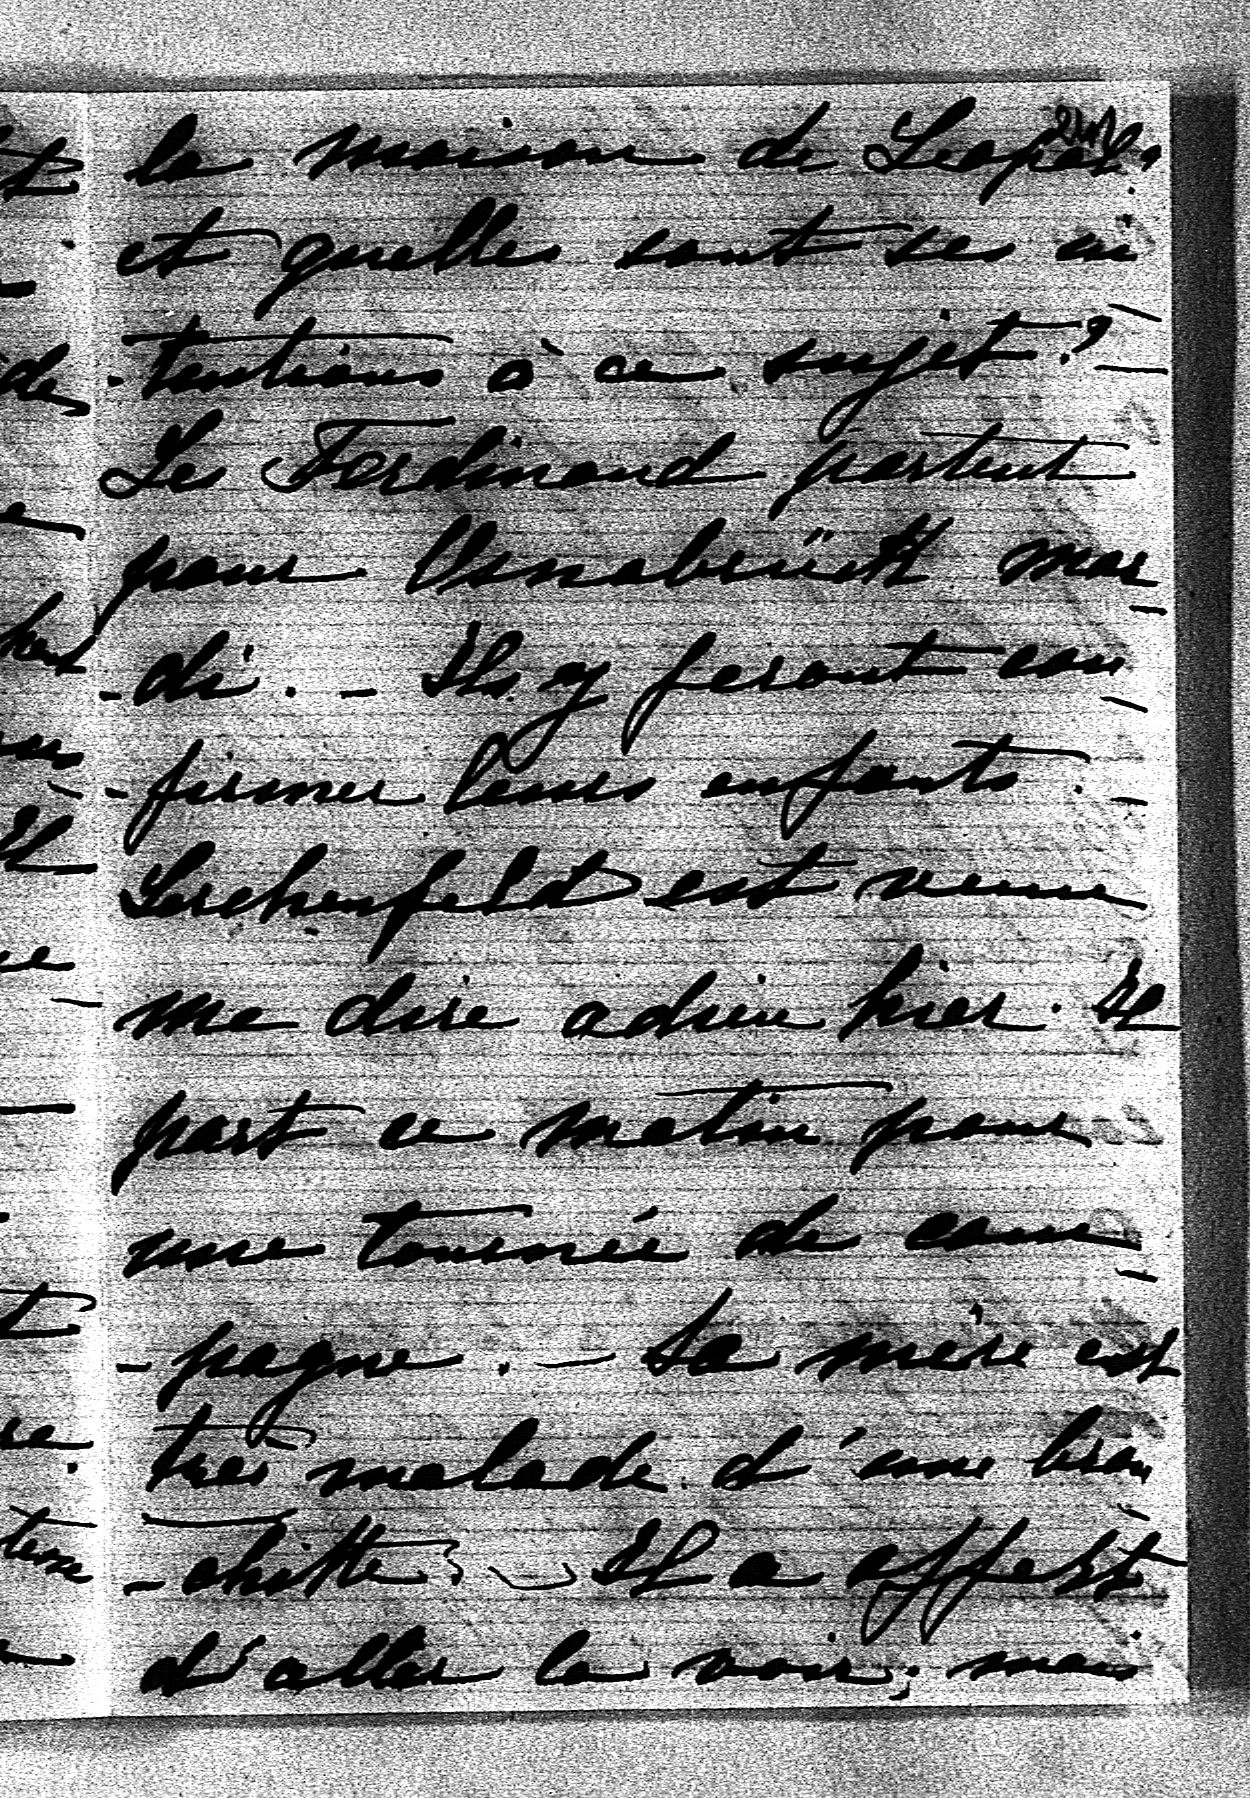 la maison de Léopol.
et quelles sont ses in
-tentions à ce sujet ?
Les Ferdinand partent
pour Osnabrück mar
-di. - Ils y feront con
-firmer leurs enfants.
Lerchenfeld est venu
me dire adieu hier. Il
part ce matin pour
une tournée de cam
-pagne. - Sa mère est
très malade d'une bron
-chitte. - Il a offert
d'aller la voir; mais